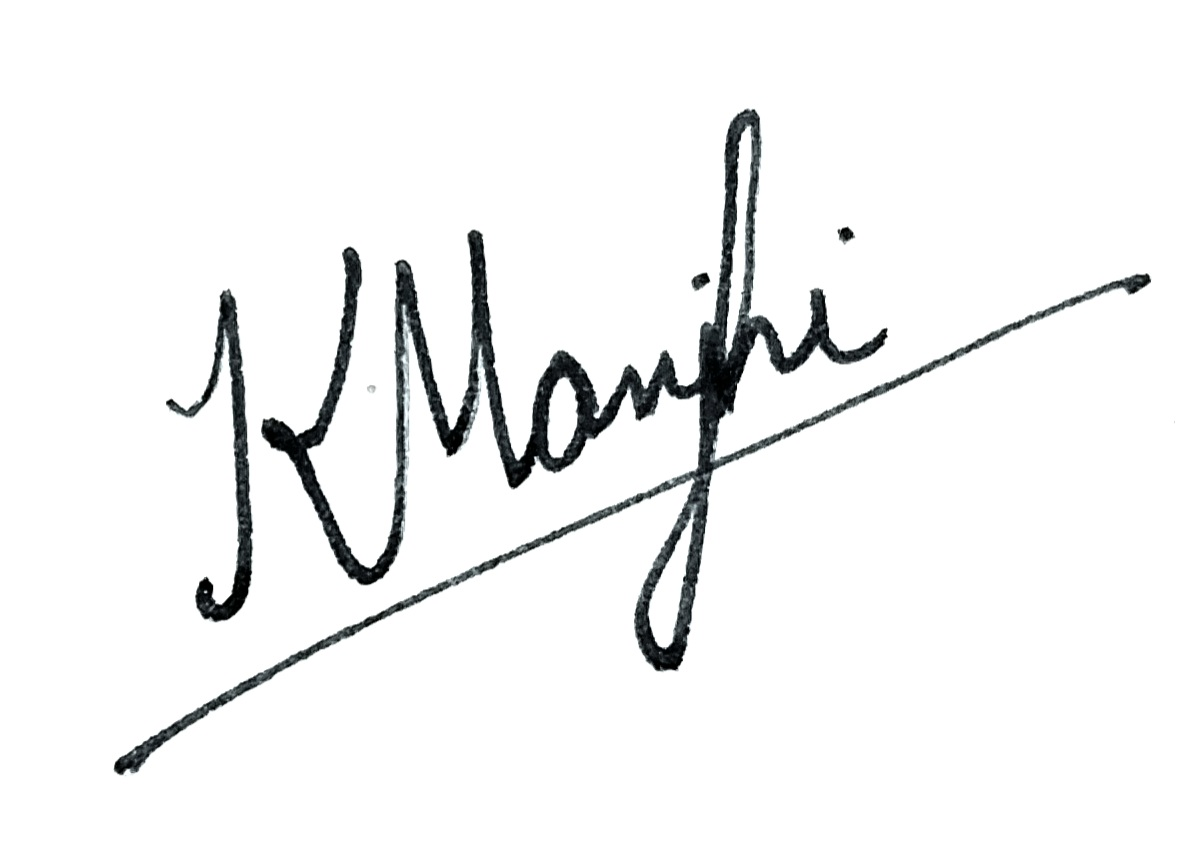 K Manjhi